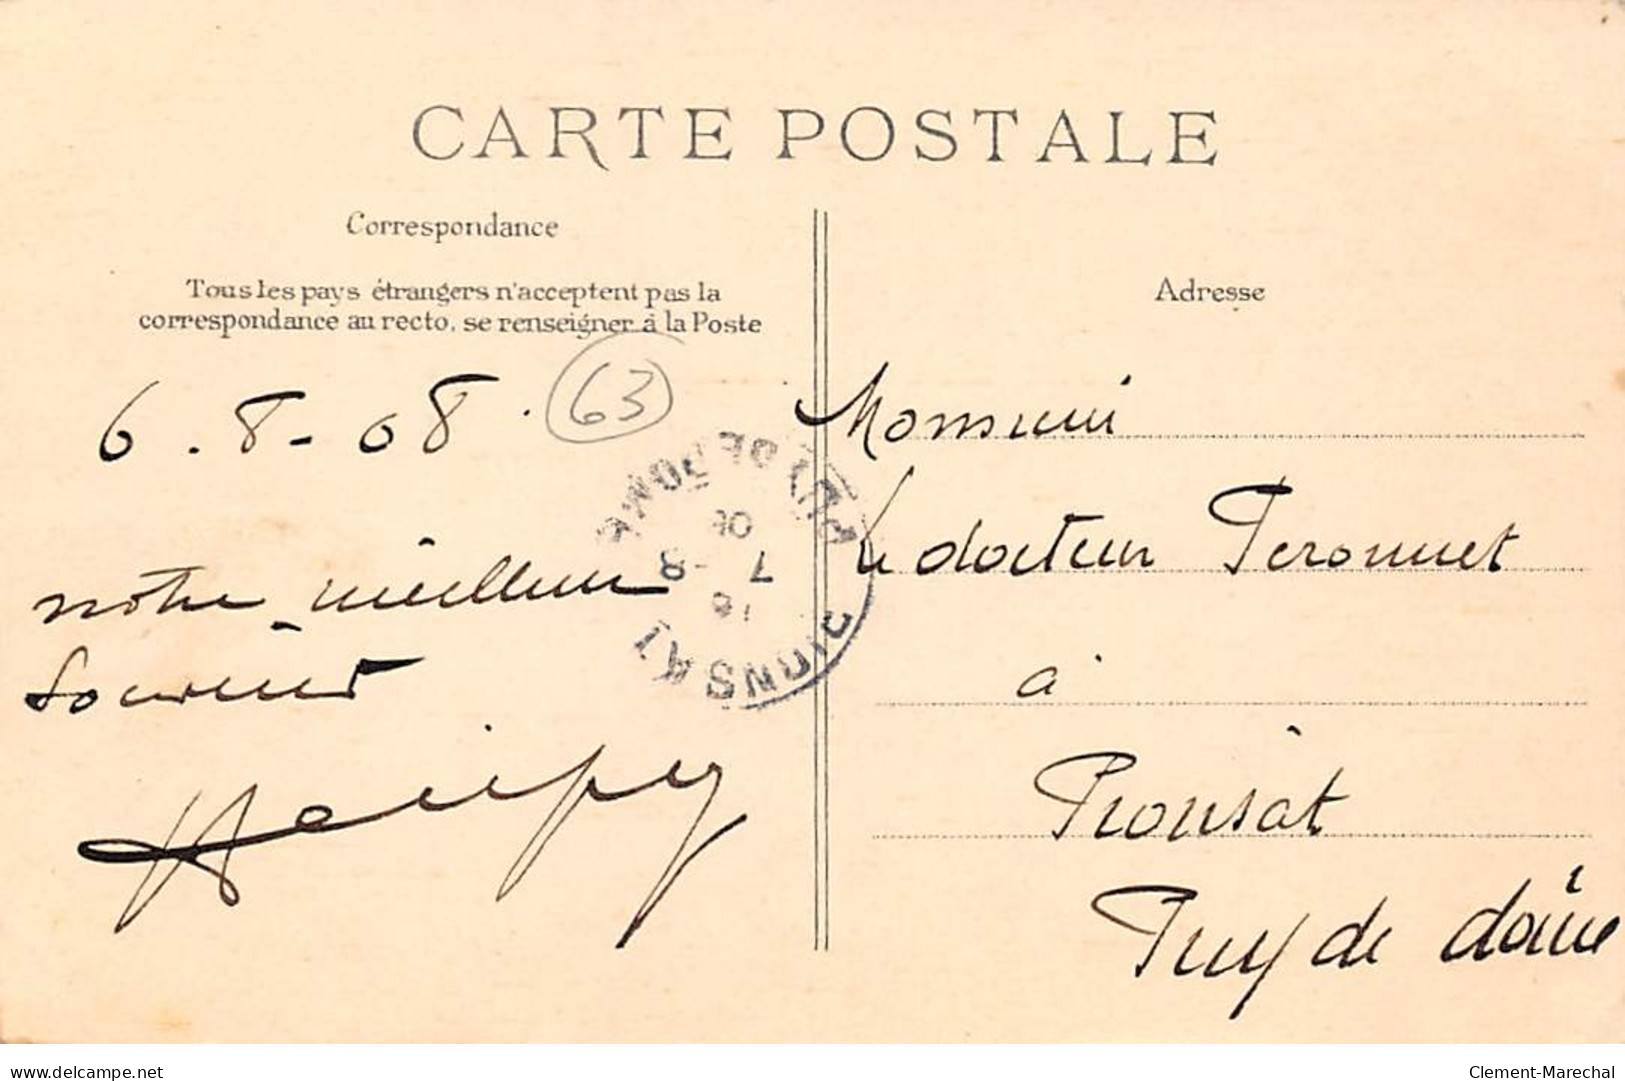 CARTE POSTALE
Correspondance
Tous les pays étrangers n'acceptent pas la
correspondance au recto, se renseigner à la Poste
6.8-08.
63
notre meilleur
souvenir
Adresse
Monsieur
le docteur Peronnet
à
Pionsat
Puy de dôme
PIONSAT
PUY DE DOME
7 -8
08
www.delcampe.net
Clement-Marechal